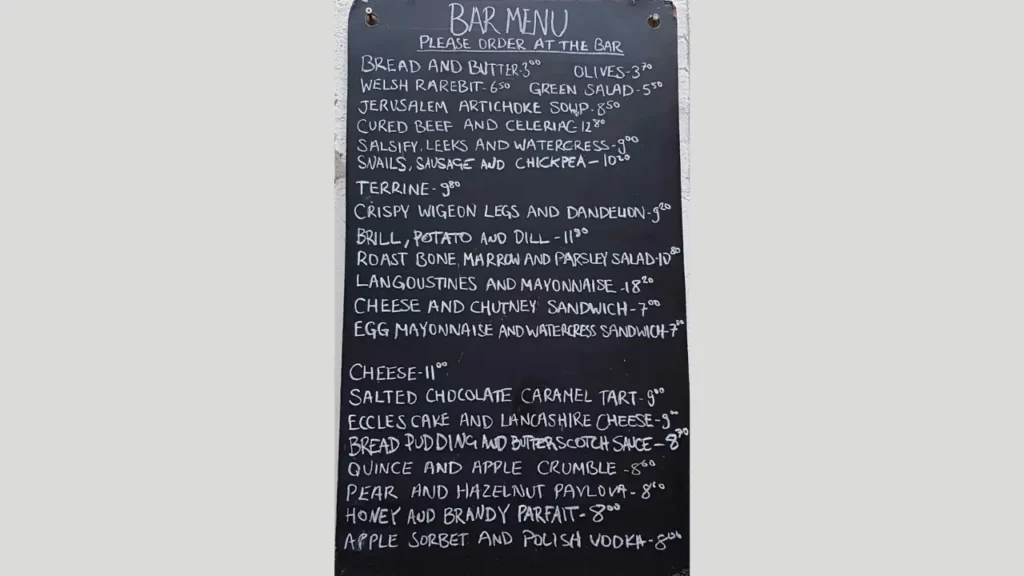 BAR MENU
PLEASE ORDER AT THE BAR
BREAD AND BUTTER-3⁰⁰ OLIVES-3⁷⁰
WELSH RAREBIT-6⁵⁰ GREEN SALAD-5⁵⁰
JERUSALEM ARTICHOKE SOUP-8⁵⁰
CURED BEEF AND CELERIAC-12⁸⁰
SALSIFY, LEEKS AND WATERCRESS-9⁰⁰
SNAILS, SAUSAGE AND CHICKPEA-10²⁰
TERRINE-9⁸⁰
CRISPY WIGEON LEGS AND DANDELION-9²⁰
BRILL, POTATO AND DILL-11⁹⁰
ROAST BONE MARROW AND PARSLEY SALAD-10⁸⁰
LANGOUSTINES AND MAYONNAISE-18²⁰
CHEESE AND CHUTNEY SANDWICH-7⁰⁰
EGG MAYONNAISE AND WATERCRESS SANDWICH-
CHEESE-11⁰⁰
SALTED CHOCOLATE CARAMEL TART-9⁰⁰
ECCLES CAKE AND LANCASHIRE CHEESE-9⁰⁰
BREAD PUDDING AND BUTTERSCOTCH SAUCE-
QUINCE AND APPLE CRUMBLE-8⁶⁰
PEAR AND HAZELNUT PAVLOVA-8⁶⁰
HONEY AND BRANDY PARFAIT-8⁰⁰
APPLE SORBET AND POLISH VODKA-